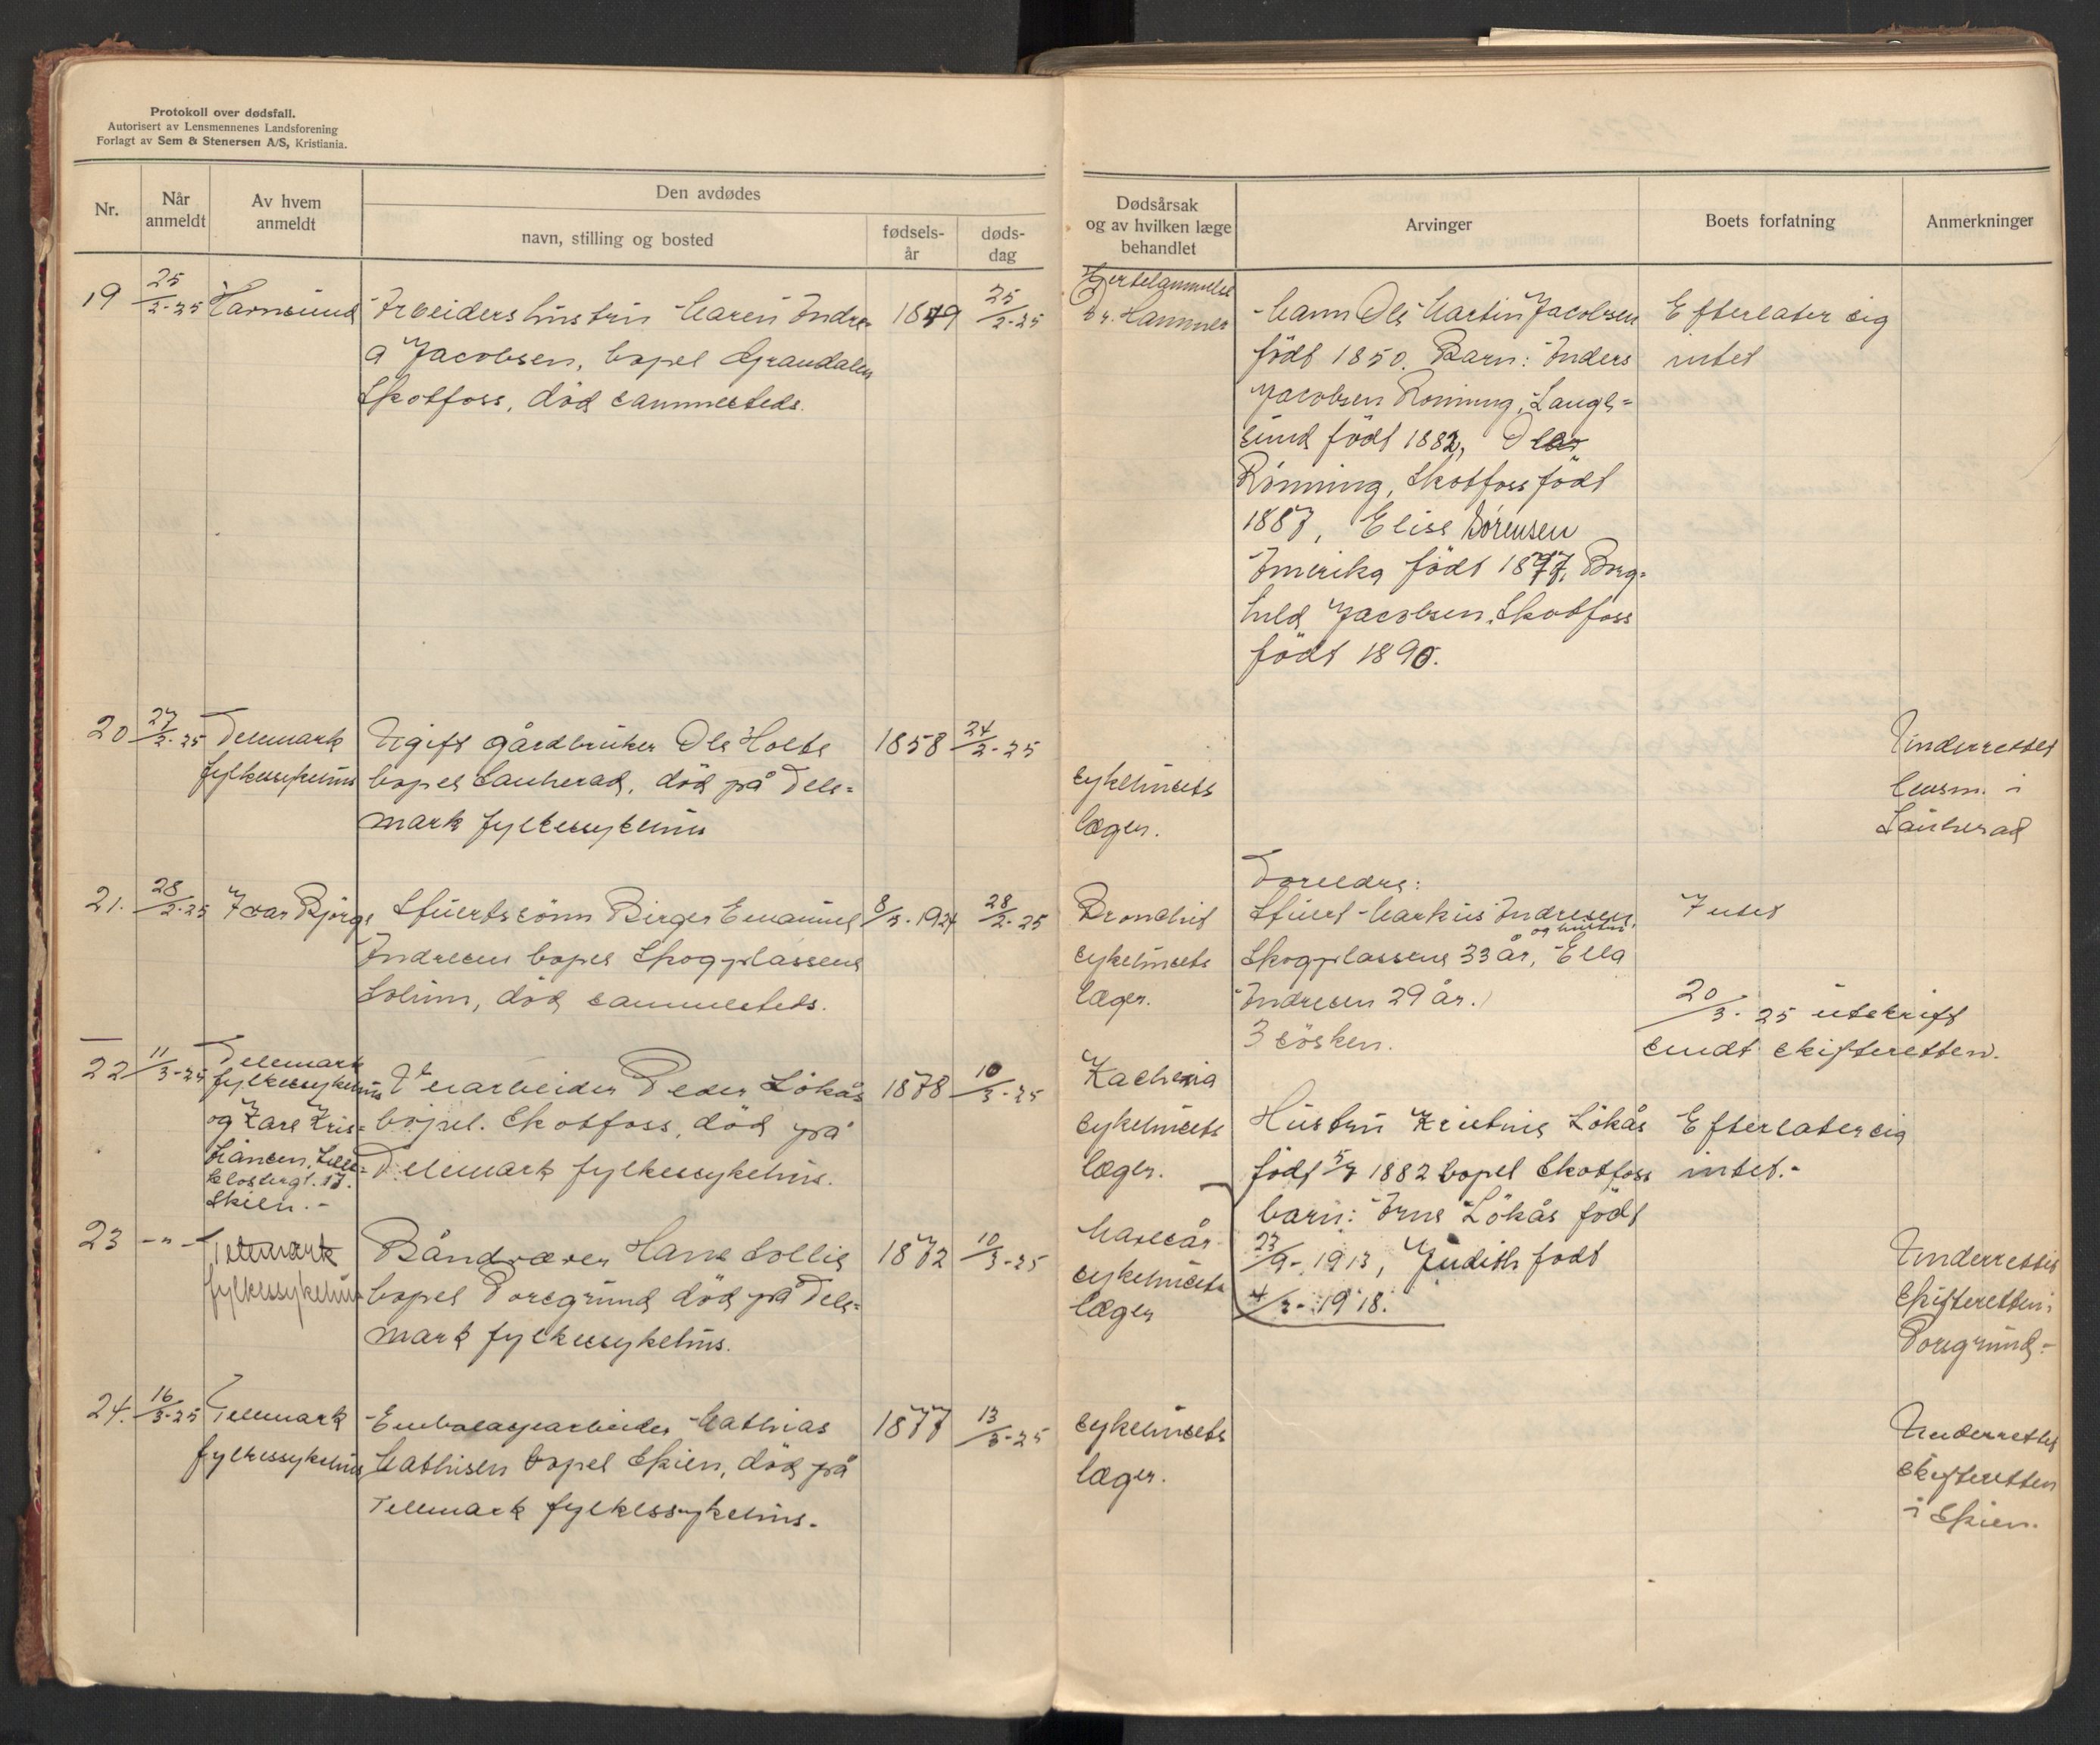 Protokoll over dødsfall.
Autorisert av Lensmennenes Landsforening
Forlagt av Sem & Stenersen A/S, Kristiania.
Nr.
Når anmeldt
Av hvem anmeldt
Den avdødes
navn, stilling og bosted
fødsels-år
døds-dag
Dødsårsak og av hvilken læge behandlet
Arvinger
Boets forfatning
Anmerkninger
19
25/2-25
Arbeiders hustru Maren Andre-
a Jacobsen, bopel Grandalen
Skotfoss, död sammesteds.
1849
25/2-25
Hjertelammelse
Dr. Hammer
Mann Ole Martin Jacobsen
født 1850. Barn: Anders
Jacobsen Rönning, Lange-
sund födt 1882, Olav
Rönning, Skotfoss födt
1887, Elise Sörensen
Amerika födt 1897, Borg-
hild Jacobsen, Skotfoss
födt 1890.
Efterlater sig
intet
20
27/2-25
Telemark
fylkessykehus
Ugift gårdbruker Ole Holte
bopel Sauherad, död på Tele-
mark fylkessykehus
1858
24/2-25
sykehusets
læger.
Underrettet
lensm. i
Sauherad
21.
28/2-25
Ivar Björge
Sfuertssönn Birger Emanuel
Andresen bopel Skogplassene
Solum, död sammesteds.
8/5-1924
28/2-25
Bronchit
sykehusets
læger.
Foreldre:
Sfuert Markus Andresen,
og hustru
Skogplassene 33 år, Ella
Andresen 29 år.
3 sösken.
Intet
20/3-25 utskrift
sendt skifteretten.
22
11/3-25
Telemark
fylkessykehus
og Karl Kris-
tiansen, Lille-
klostergt. 17.
Skien.-
Veiarbeider Peder Lökås
bopel. Skotfoss, död på
Telemark fylkessykehus.
1878
10/3-25
Kachexia
sykehusets
læger.
Hustru Kristine Lökås
födt 5/7 1882 bopel Skotfoss
barn: Arne Lökås födt
27/9-1913, Judith födt
4/3-1918.
Efterlater sig
intet.-
23
-"-
Telemark
fylkessykehus
Båndvæver Hans Sollie
bopel Porsgrund död på Tele-
mark fylkessykehus.
1872
10/3-25
Mavesår
sykehusets
læger
Underrettet
skifteretten i
Porsgrund.-
24.
16/3-25
Telemark
fylkessykehus
Embalagearbeider Mathias
Mathisen bopel Skien, död på
Telemark fylkessykehus.
1877
13/3-25
sykehusets
læger.
Underrettet
skifteretten
i Skien.